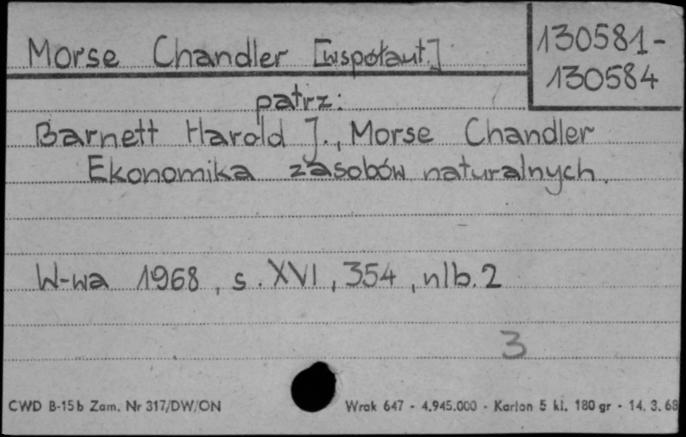 Morse Chandler [współaut.]
130581-
130584
patrz:
Barnett Harold J., Morse Chandler
Ekonomika zasobów naturalnych.
W-wa 1968, s. XVI, 354, nlb. 2
3
CWD B-15b Zam. Nr 317/DW/ON
Wrak 647 - 4.945.000 - Karton 5 kl. 180 gr - 14. 3. 68